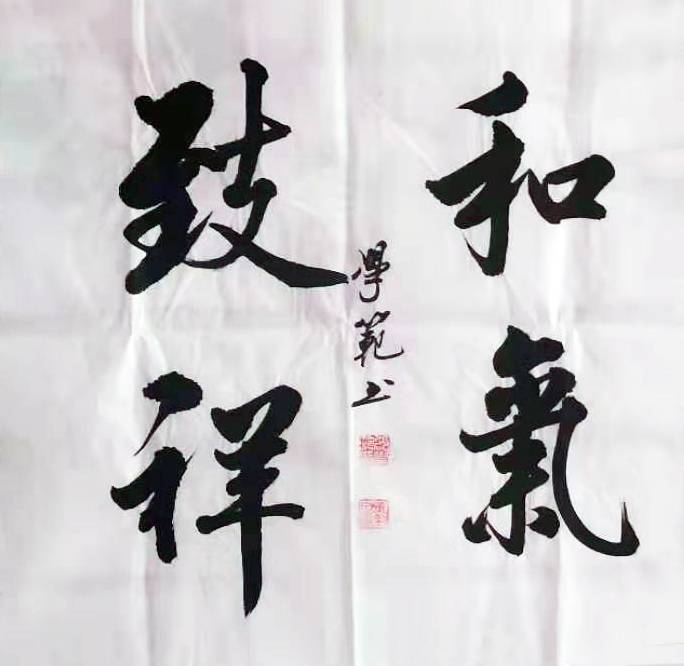 和氣
致祥
學範书